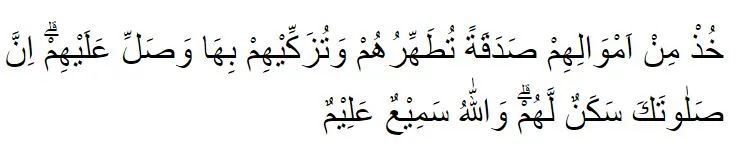 خُذْ مِنْ اَمْوَالِهِمْ صَدَقَةً تُطَهِّرُهُمْ وَتُزَكِّيْهِمْ بِهَا وَصَلِّ عَلَيْهِمْۗ اِنَّ
صَلٰوتَكَ سَكَنٌ لَّهُمْۗ وَاللّٰهُ سَمِيْعٌ عَلِيْمٌ